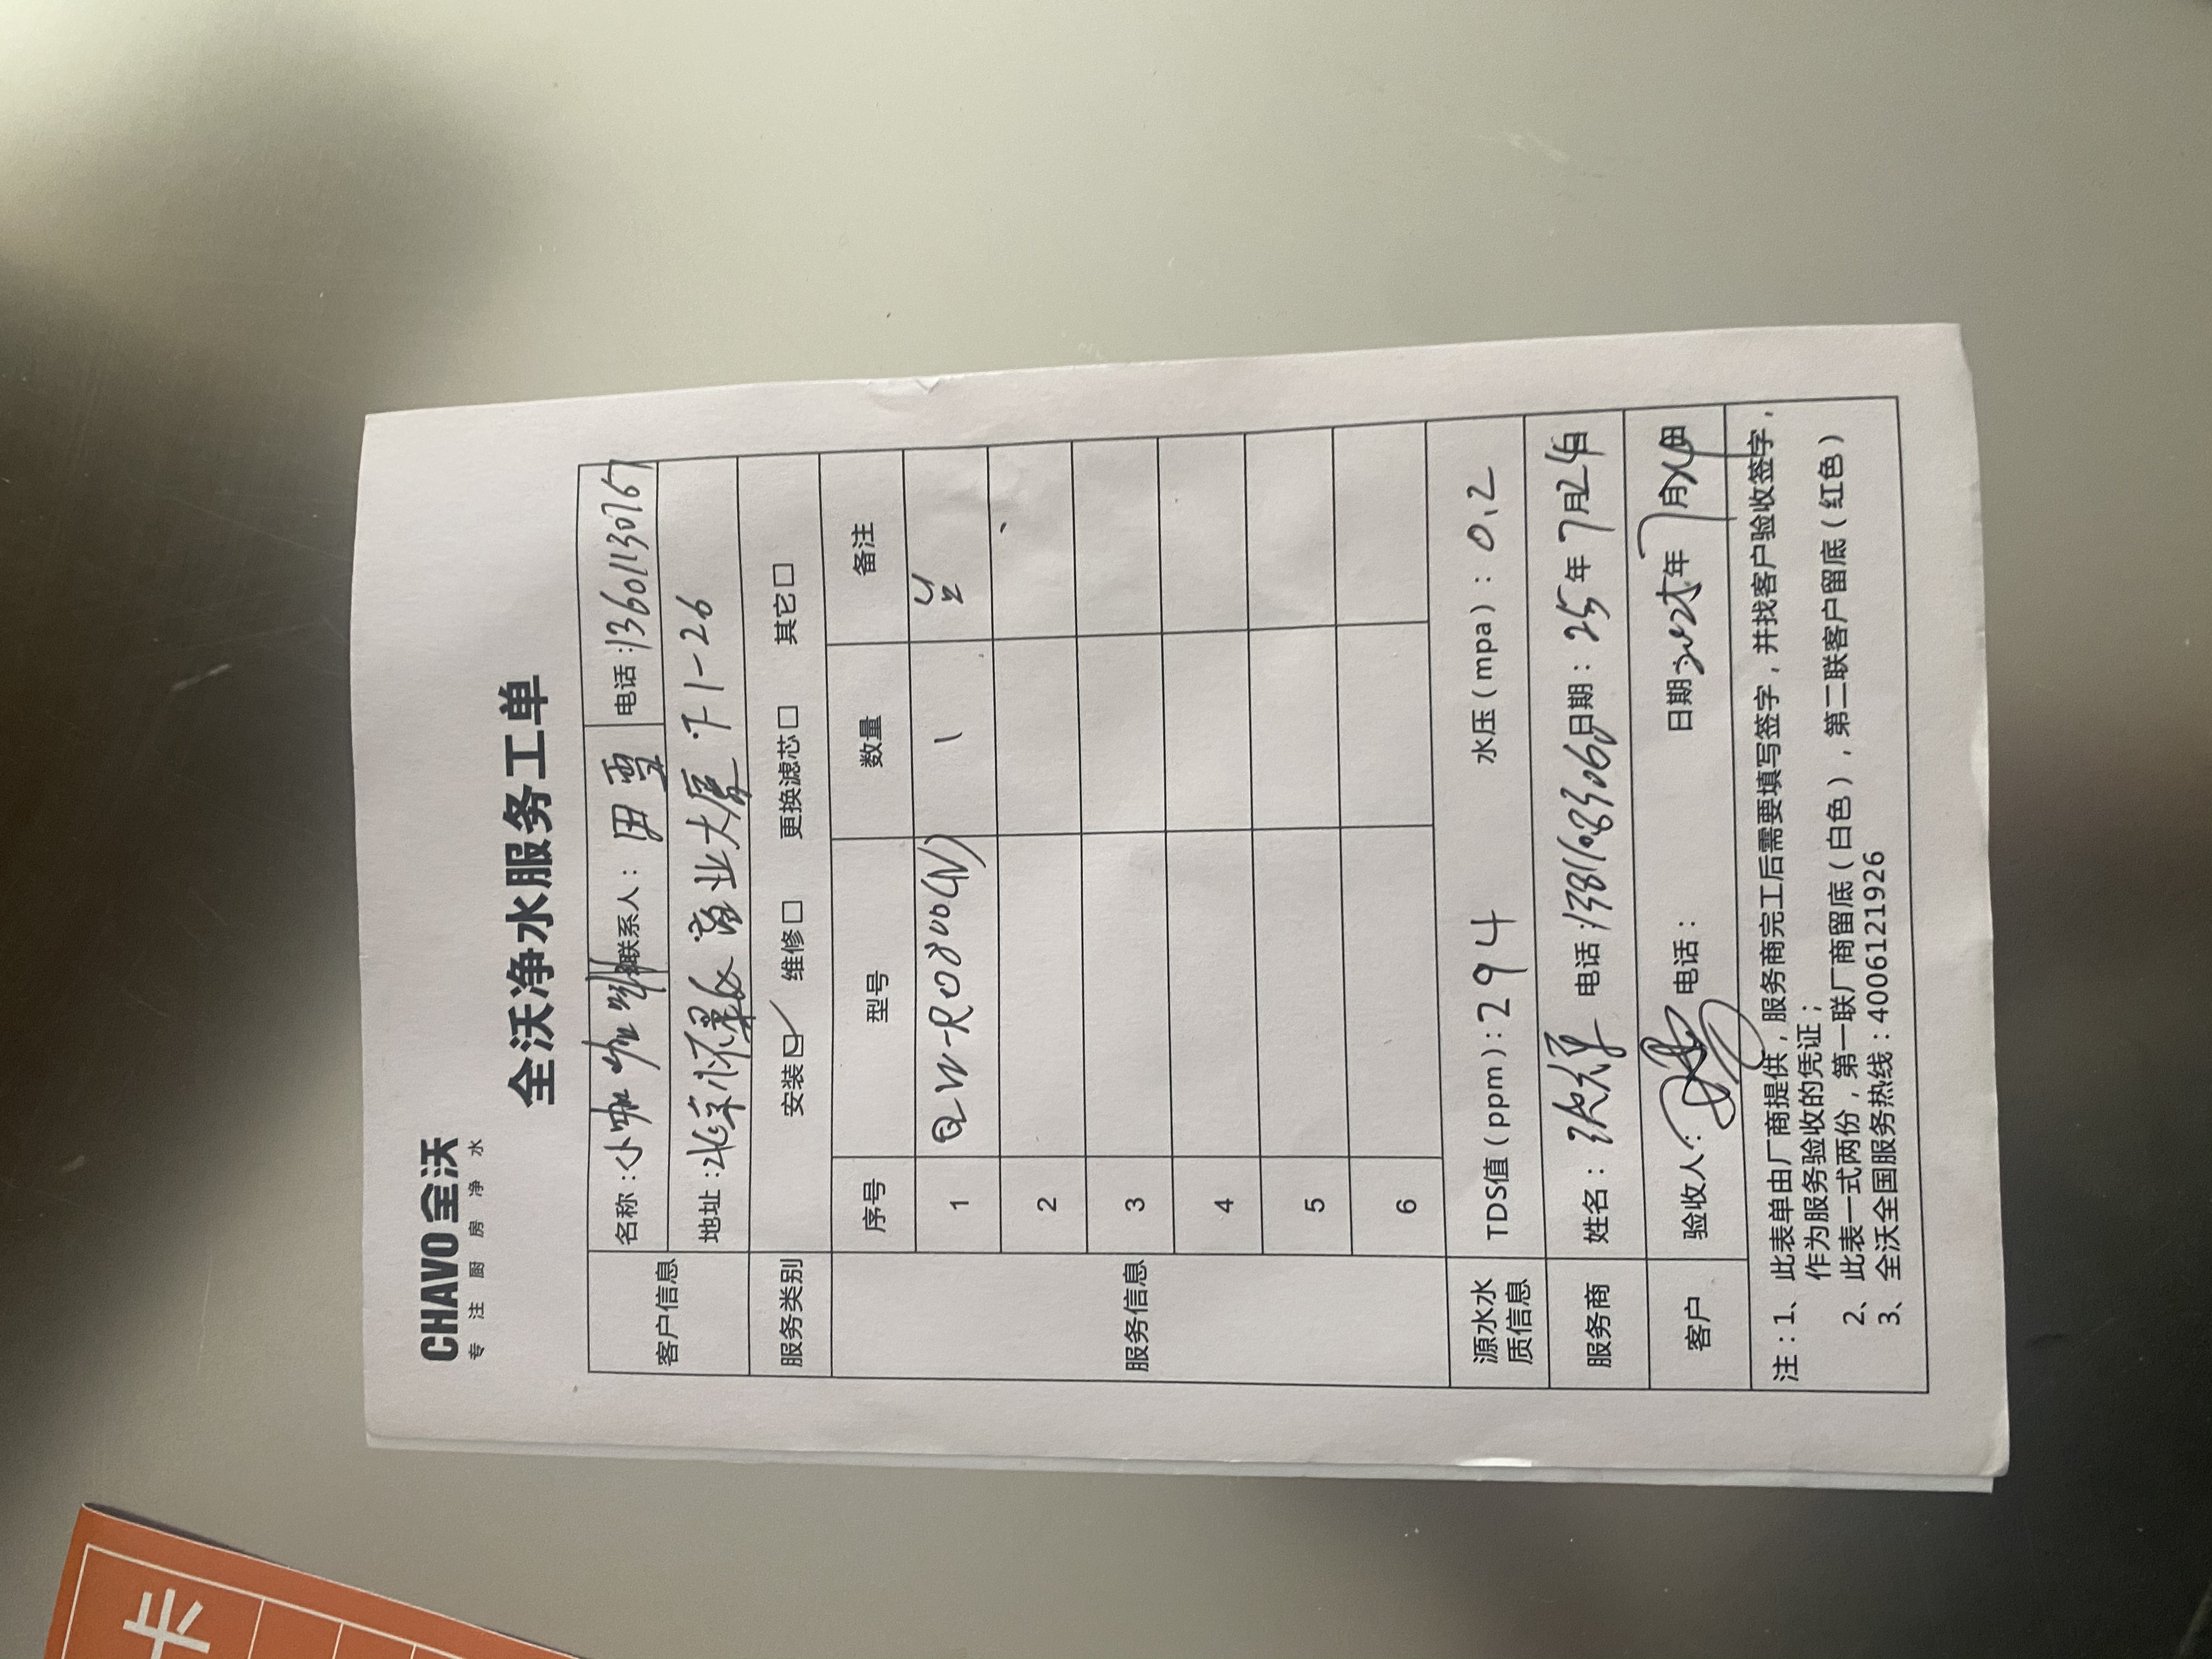 CHAVO 全沃
专注厨房净水
全沃净水服务工单
客户信息 名称：小咖 咖啡 联系人：田雪 电话：13601130767
地址：北京怀柔 商业大厦 F1-26
服务类别 安装☑ 维修□ 更换滤芯□ 其它□
服务信息 序号 型号 数量 备注
1 QW-RO800(W) 1
2
3
4
5
6
源水水质信息 TDS值（ppm）：294 水压（mpa）：0.2
服务商 姓名： 电话：13811083060 日期：25年7月24日
客户 验收人： 电话： 日期：2025年7月24日
注：1、此表单由厂商提供，服务商完工后需要填写签字，并找客户验收签字，
作为服务验收的凭证；
2、此表一式两份，第一联厂商留底（白色），第二联客户留底（红色）
3、全沃全国服务热线：4006121926
卡